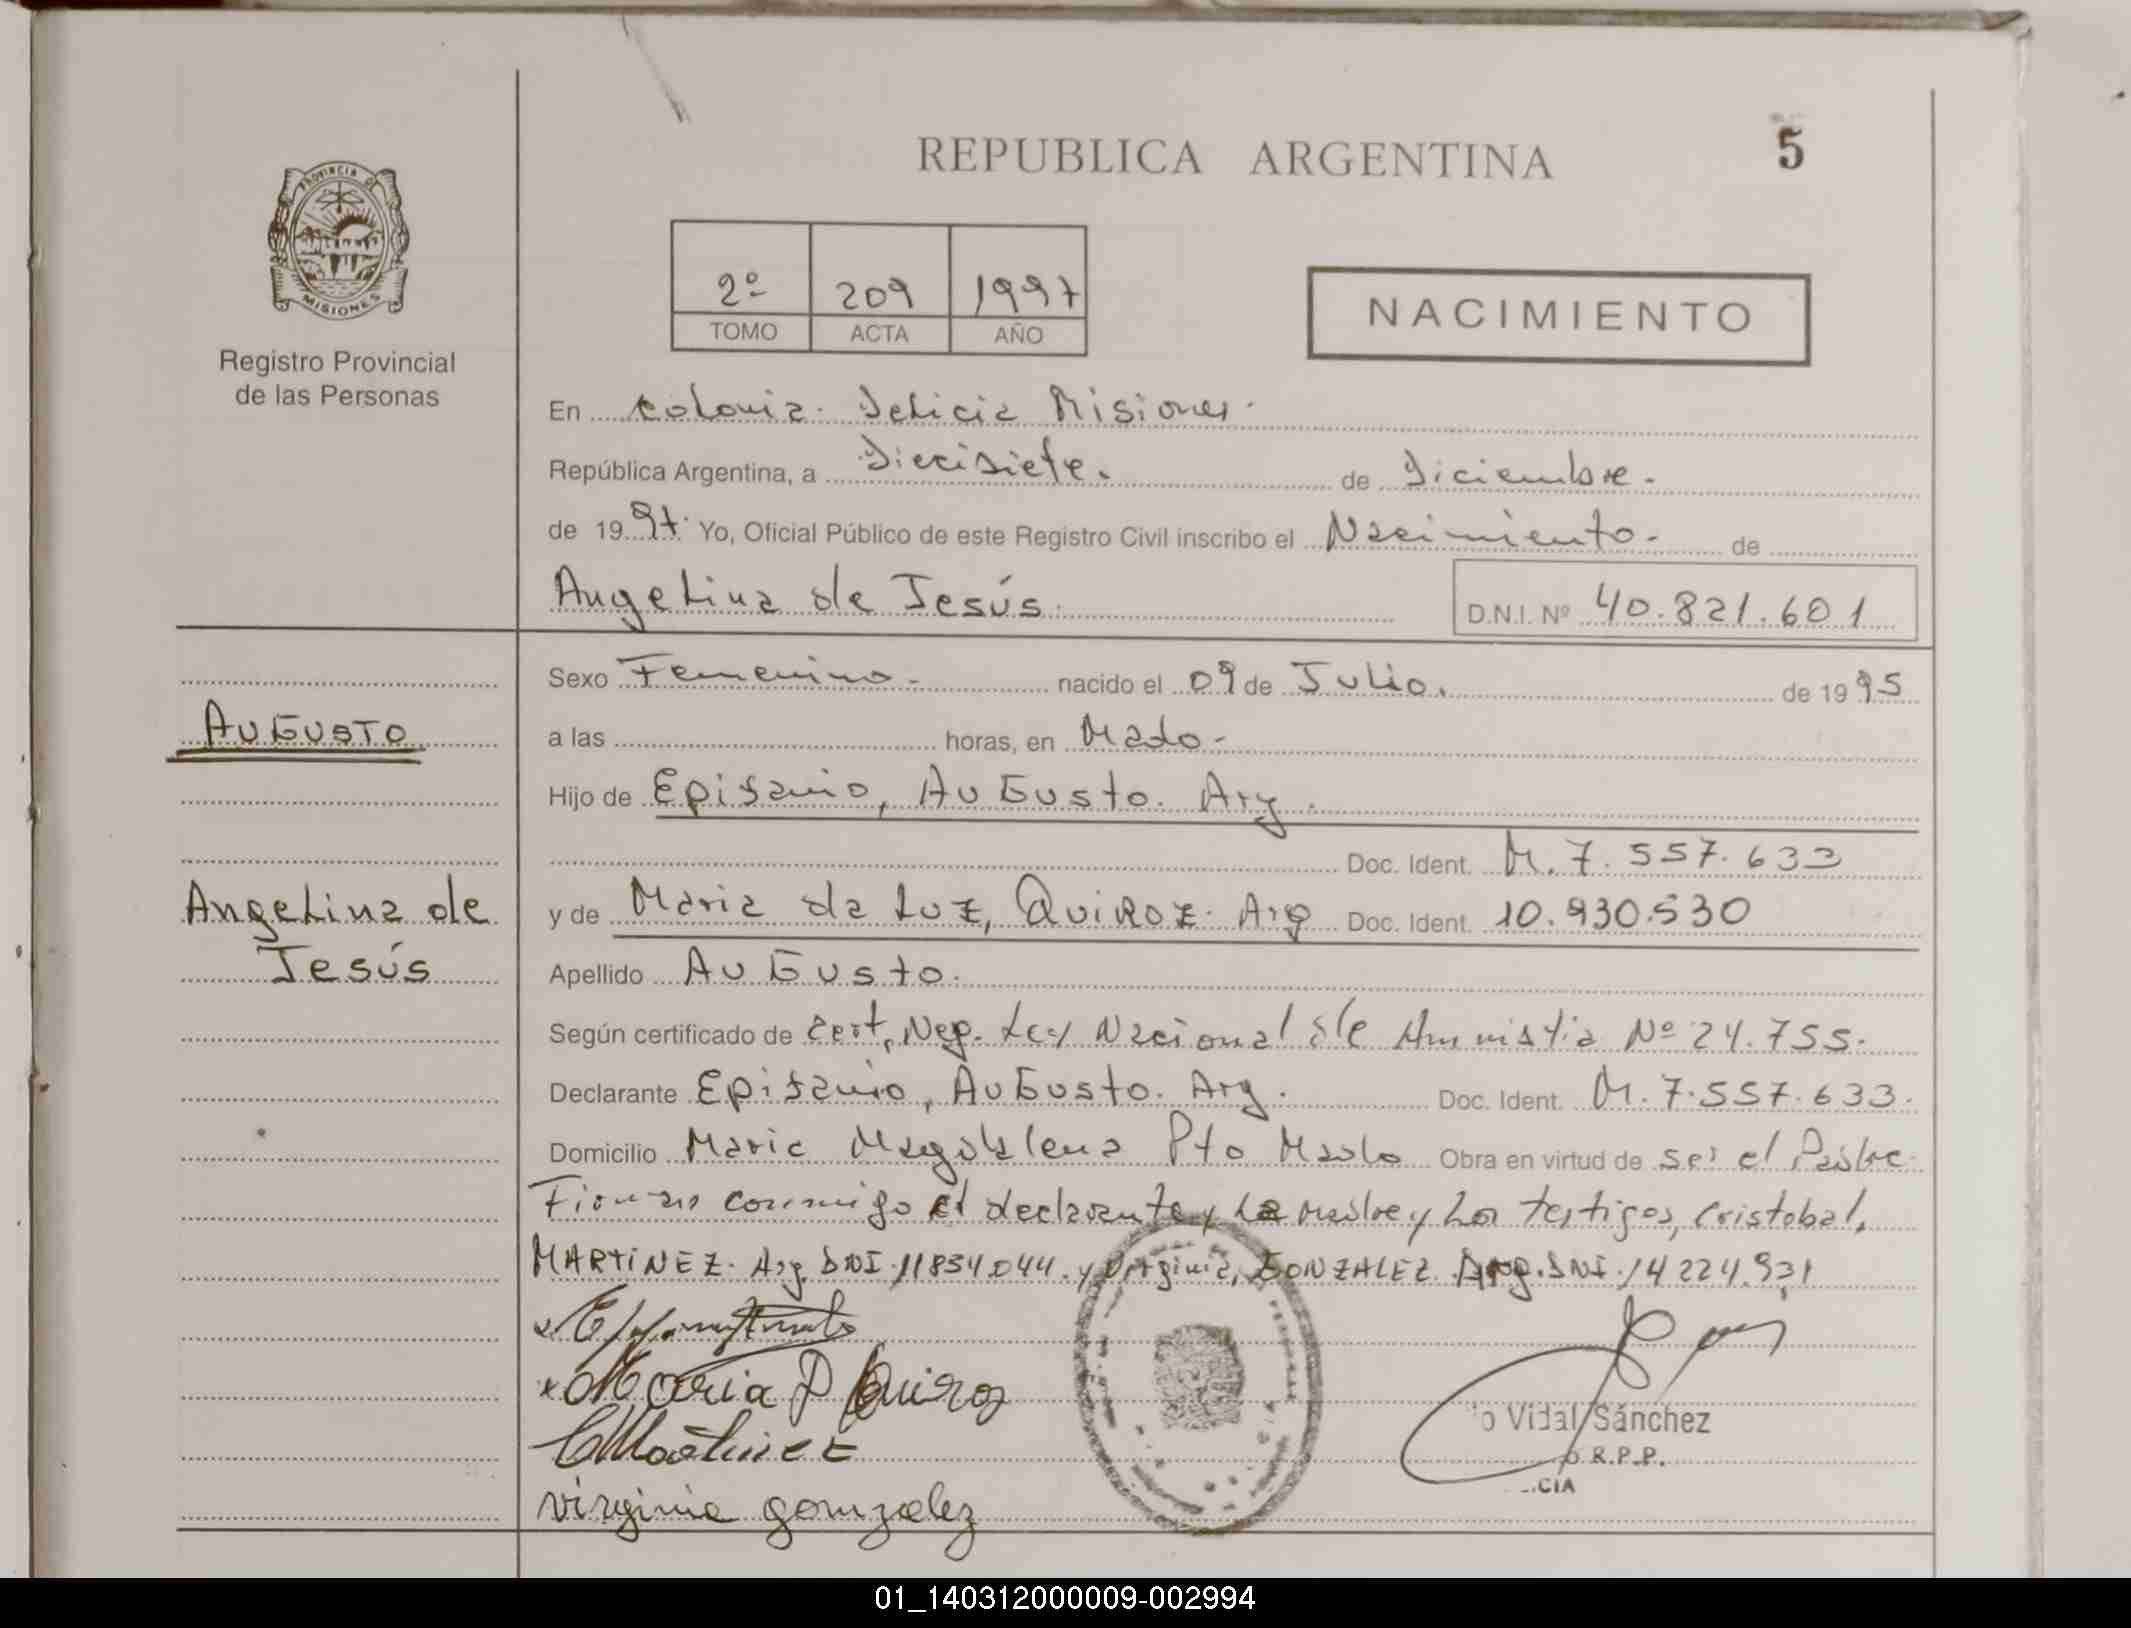 REPUBLICA ARGENTINA
5
PROVINCIA DE
MISIONES
Registro Provincial
de las Personas
2º 209 1997
TOMO ACTA AÑO
NACIMIENTO
En Colonia Delicia Misiones.
República Argentina, a Diecisiete. de Diciembre.
de 1997. Yo, Oficial Público de este Registro Civil inscribo el Nacimiento. de
Angelina de Jesús.
D.N.I. Nº 40.821.601
AUGUSTO
Angelina de
Jesús
Sexo Femenino. nacido el 09 de Julio. de 1995
a las horas, en Mado.
Hijo de Epifanio, AuGusto. Arg.
Doc. Ident. M. 7.557.633
y de Maria da Luz, QuiRoz. Arg Doc. Ident. 10.930.530
Apellido AuGusto.
Según certificado de Cert. Neg. Ley Nacional de Amnistia Nº 24.755.
Declarante Epifanio, AuGusto. Arg. Doc. Ident. M. 7.557.633.
Domicilio Maria Magdalena Pto Mado Obra en virtud de ser el Padre
Firman conmigo el declarante y La madre y Los testigos, Cristobal,
MARTINEZ. Arg. DNI. 11834044. y Virginia, GONZALEZ Arg. DNI. 14224.931
Maria D Quiroz
CMartinez
virginia gonzalez
o Vidal Sánchez
R.P.P.
CIA
01_140312000009-002994